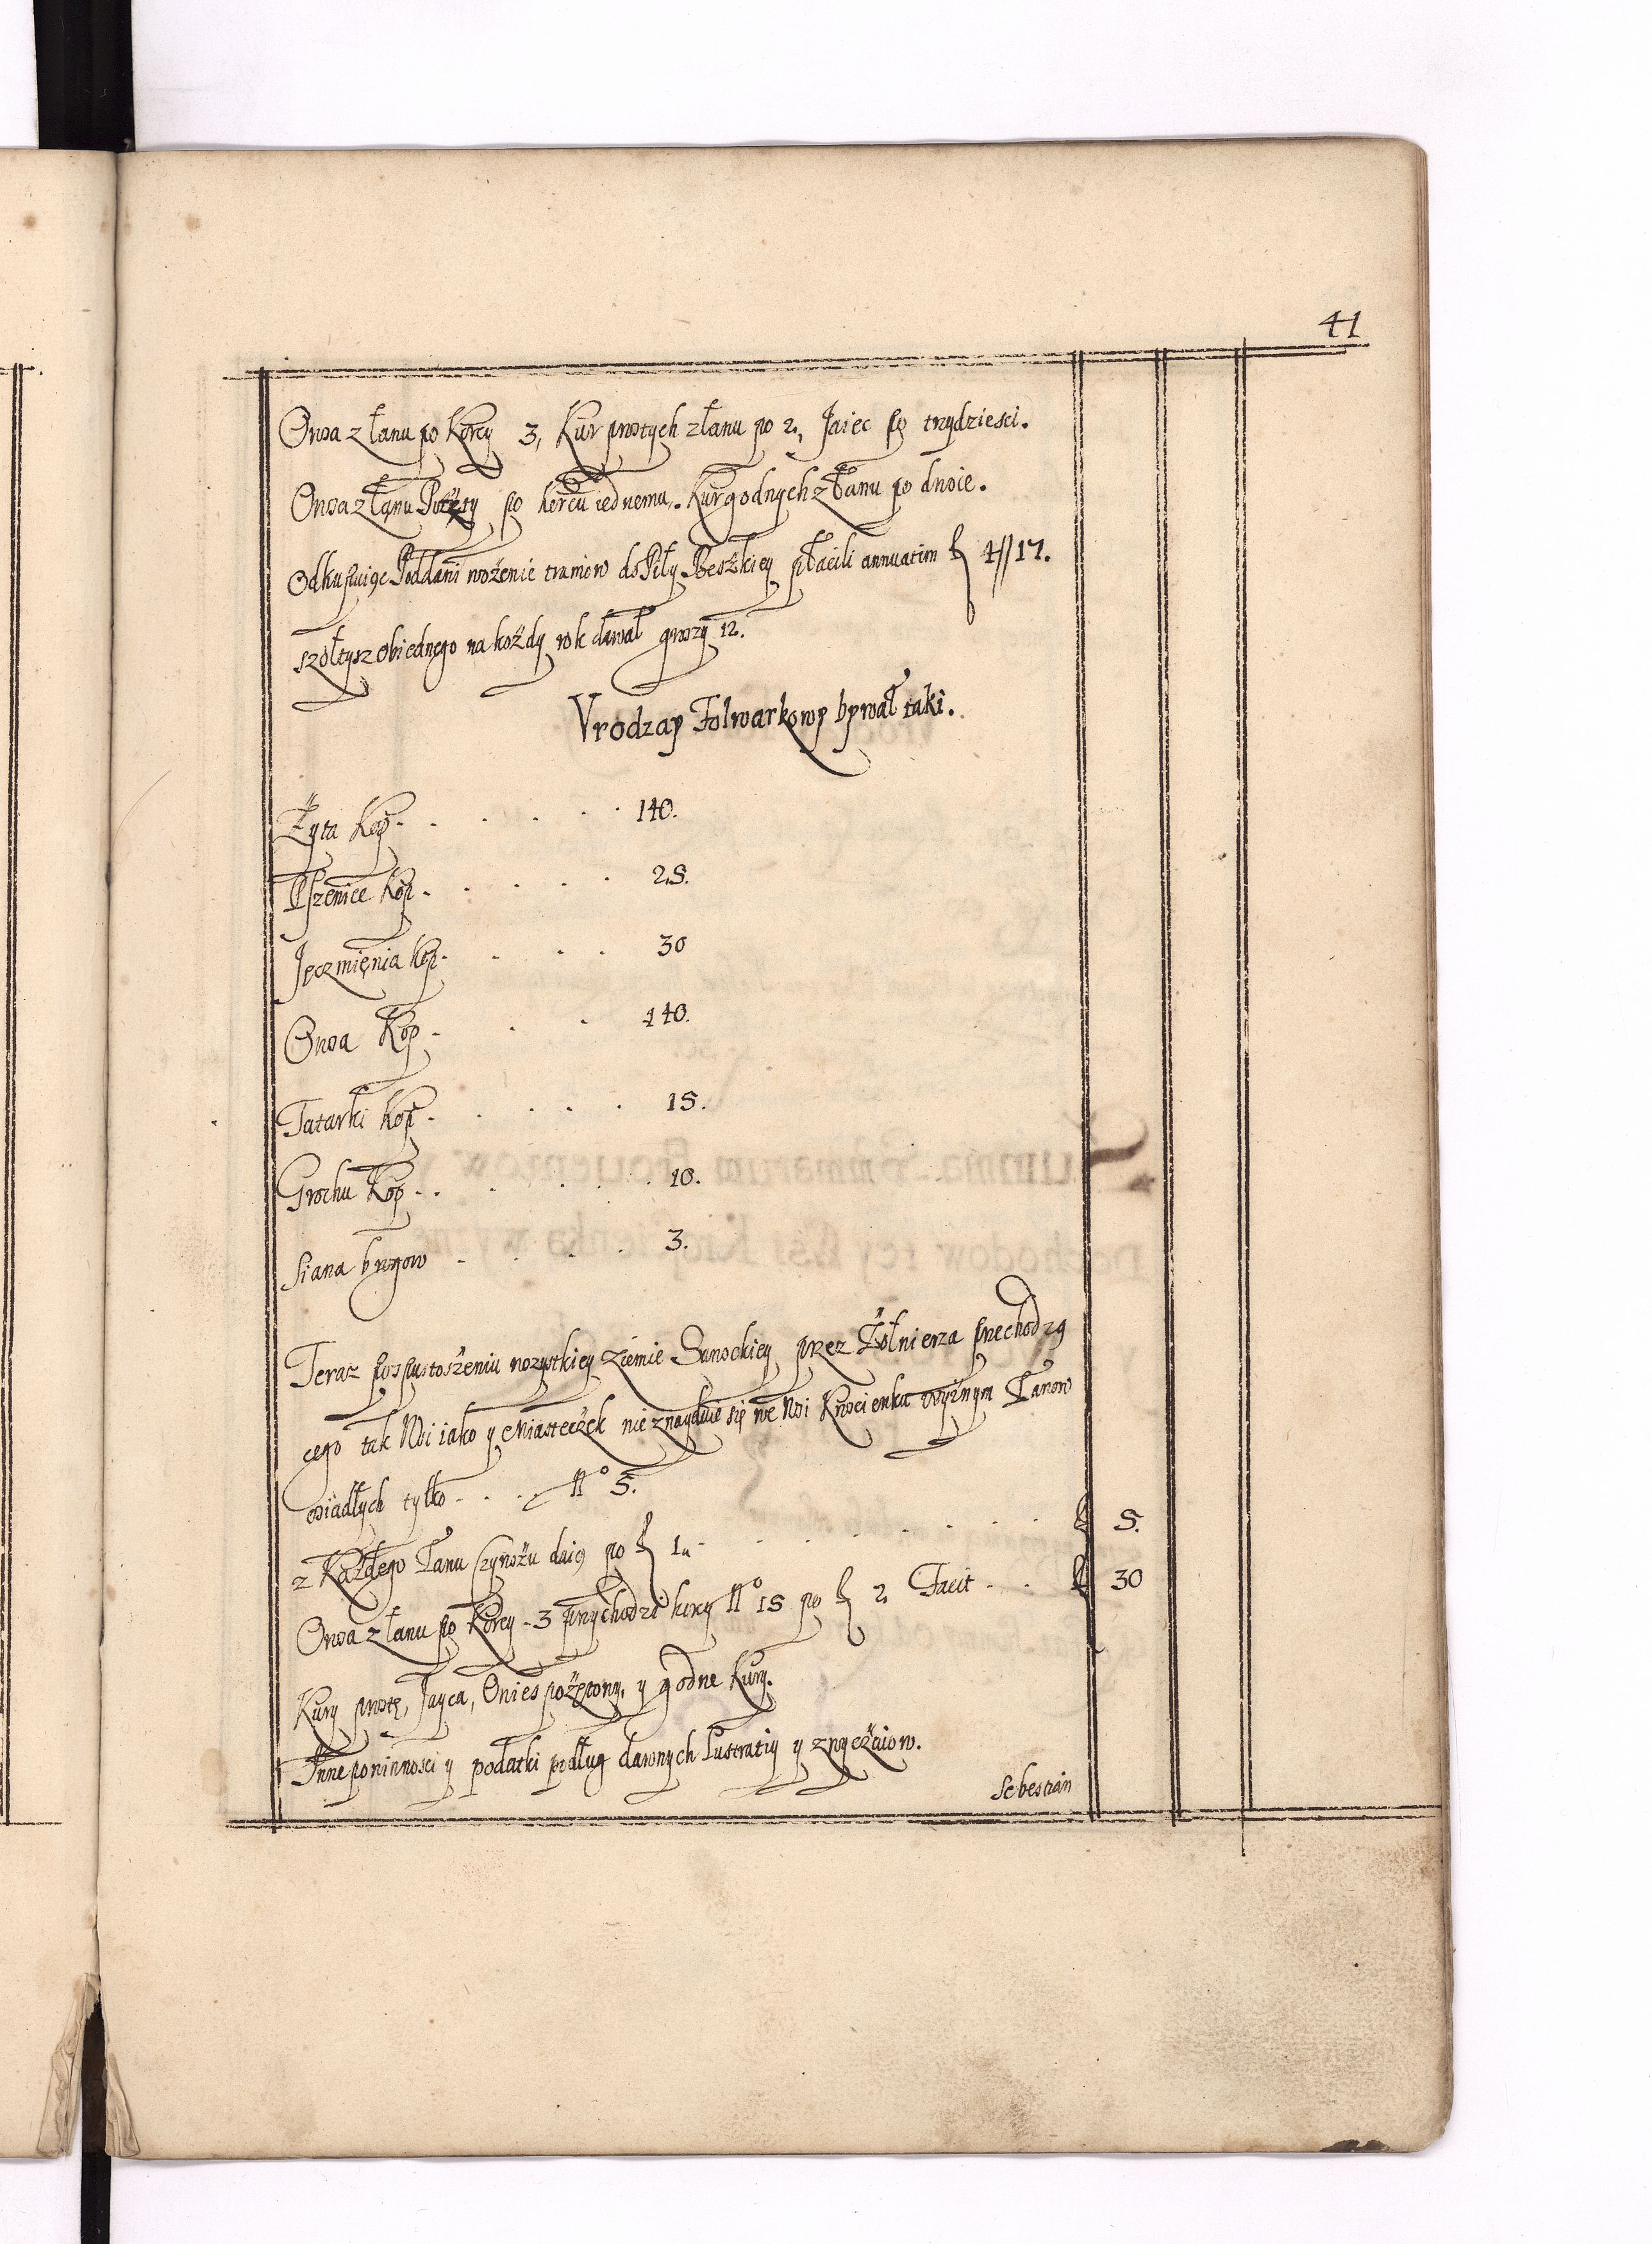 41
Owsa z łanu po Korcy 3, Kur prostych z łanu po 2, Jaiec po trzydziesci.
Owsa z łanu po korcu iednemu. Kur godnych z Łanu po dwoie.
Odkupuiąc Poddani wożenie tramow do Piły Beskiey płacili annuatim f 4//17.
szołtysz obiednego na kożdy rok dawał groszy 12.
Vrodzay Folwarkowy bywał taki.
Żyta Kop . . . . . 140.
Pszenice Kop . . . . . 25.
Jęczmięnia kop . . . . 30
Owsa Kop . . . 140.
Tatarki Kop . . . . . 15.
Grochu Kop . . . . . . 10.
Siana brogow . . . . 3.
Teraz po spustoszeniu wszystkiey Ziemie Sanockiey przez Żołnierza przechodzą
cego tak Wsi iako y Miasteczek nie znayduie się we Wsi Krościenku Wyżnym Łanow
osiadłych tylko . . . . No 5.
z Każdego Łanu Czynszu daią po f 1 . . . . . . . f 5.
Owsa z łanu po Korcy 3 przychodzi korcy No 15 po f 2 Facit . . . f 30
Kury proste, Jayca, Owies y godne Kury.
Inne powinnosci y podatki podług dawnych Lustratiy y zwyczaiow.
Sebestian